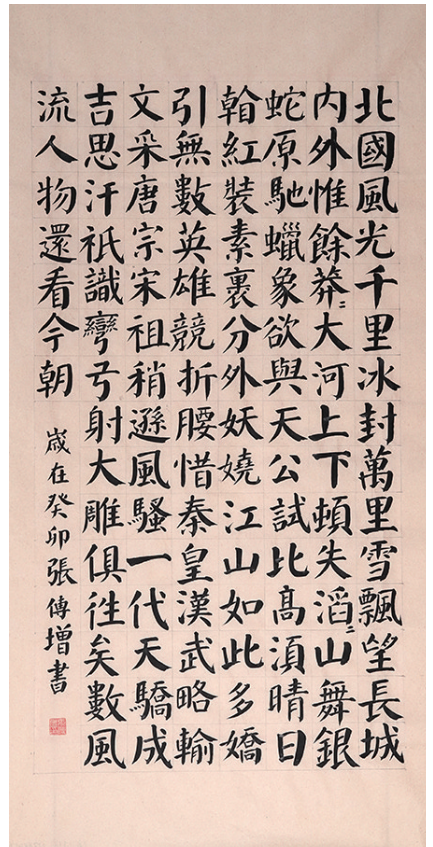 北國風光千里冰封萬里雪飄望長城
内外惟餘莽〻大河上下頓失滔〻山舞銀
蛇原馳蠟象欲與天公試比高須晴日
翰紅裝素裏分外妖嬈江山如此多嬌
引無數英雄競折腰惜秦皇漢武略輸
文采唐宗宋祖稍遜風騷一代天驕成
吉思汗祇識彎弓射大雕俱往矣數風
流人物還看今朝
歲在癸卯張傳增書